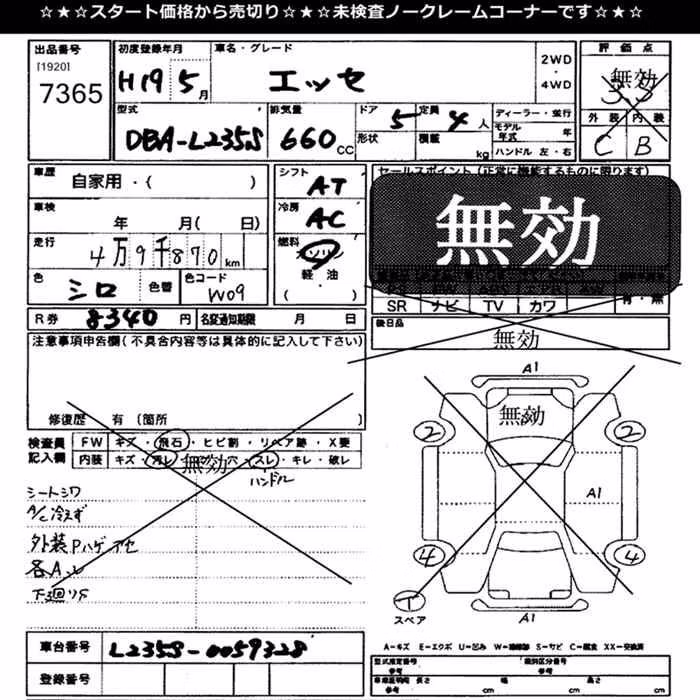 ☆★☆★スタート価格から売切り☆★☆★未検査ノークレームコーナーです☆★☆★
出品番号 初度登録年月 車名・グレード 評価点
[1920]
7365
H19 5月 エッセ 2WD・4WD 無効 3.5
外装 内装
C B
型式 排気量 ドア 定員 ディーラー・並行
DBA-L235S 660CC 5 4人 モデル年式 年
形状 積載 kg ハンドル 左・右
車歴 自家用・( )
シフト AT
セールスポイント(正常に機能するものに限ります)
無効
車検 年 月( 日)
冷房 AC
走行 4万9千870km
燃料 ガソリン
軽・油
( )
色 シロ 色替 色コード W09
SR ナビ TV カワ 有・無
R券 8340円 名変通知期限 月 日
後日品
無効
注意事項申告欄(不具合内容等は具体的に記入して下さい)
修復歴 有 (箇所 )
検査員記入欄 FW キズ・飛石・ヒビ割・リペア跡・X要
内装 キズ・汚レ・無効・穴・スレ・キレ・破レ
ハンドル
シートシワ
A/C冷えず
外装Pハゲ アセ
各A
下廻りS
A1
無効
2 2
A1
4 4
T
スペア
A1
車台番号 L235S-0059328
登録番号
A=キズ E=エクボ U=凹み W=補修跡 S=サビ C=腐食 XX=交換済
型式指定番号 類別区分番号
参考 参考
車庫証明用 長さ 幅 高さ
参考 cm cm cm